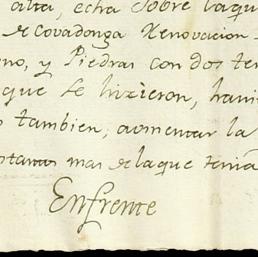 alta, echa sobre laqu
de Covadonga Renovacion
no, y Piedras con dos te
que se hizieron, hani
tambien, aumentar la
tantas mas de laque tenia
Enfrente